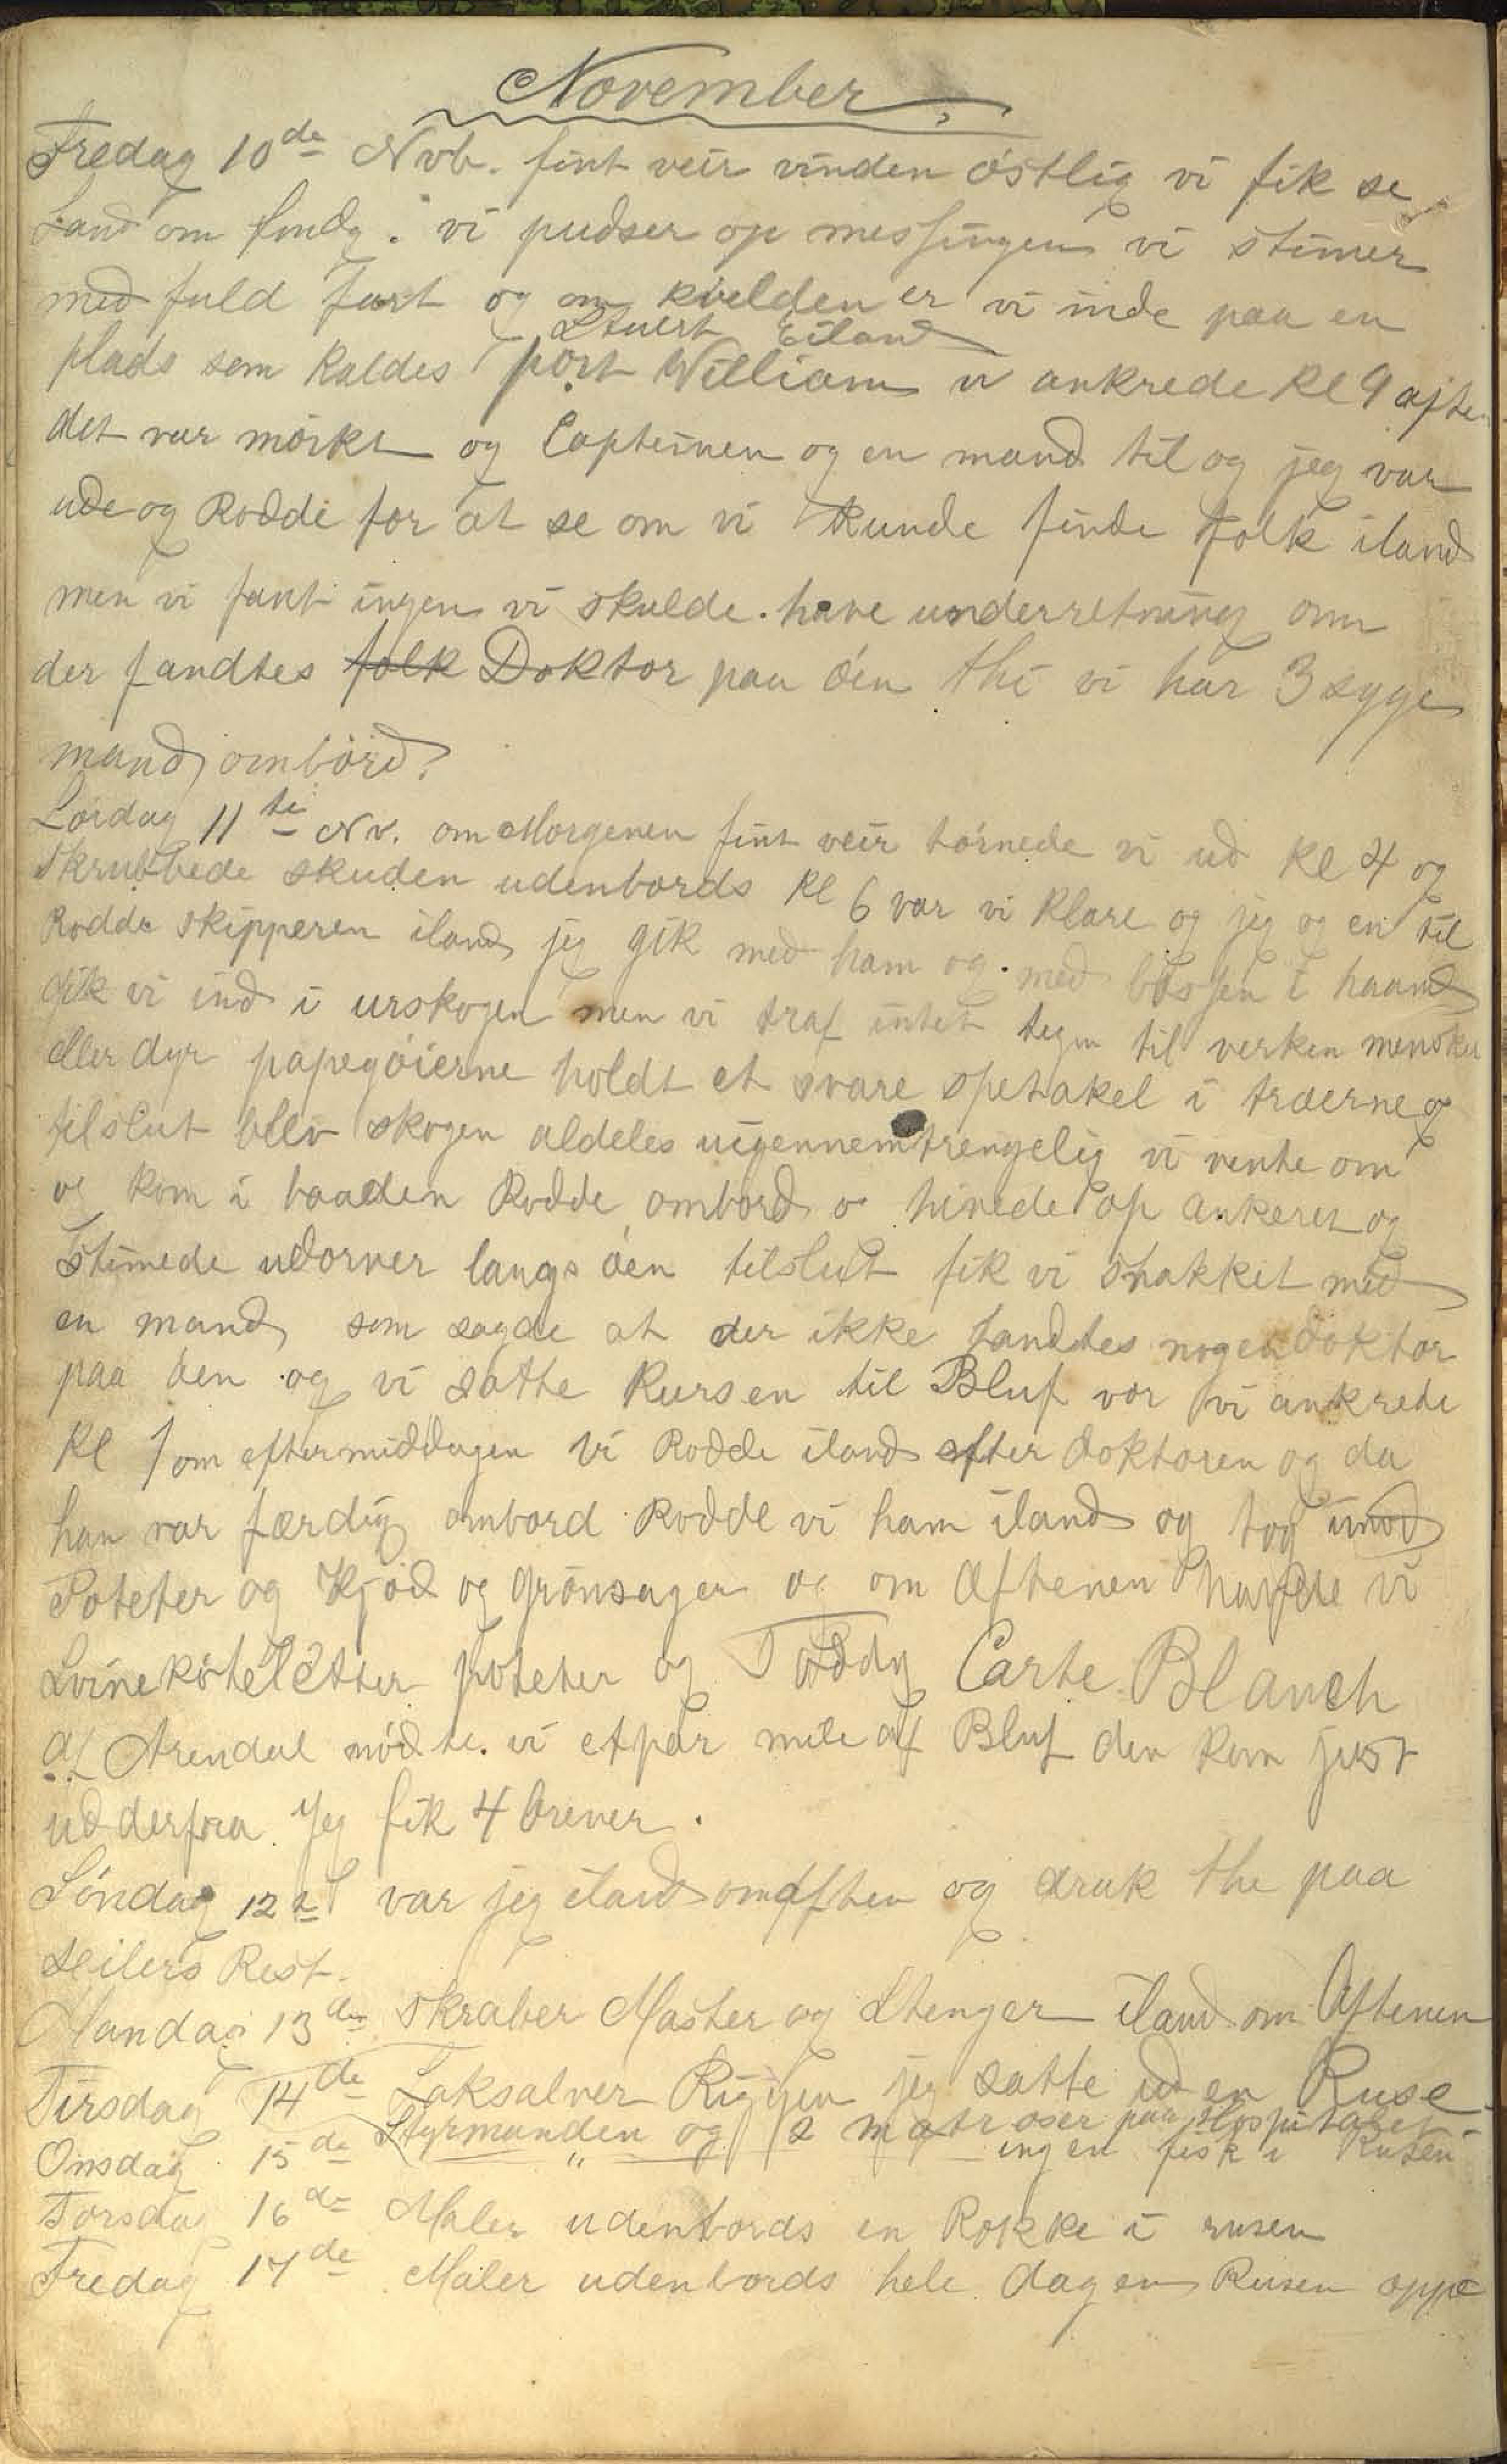 November
Fredag 10de Nvb. fint veir vinden østlig vi fik se
Land om fmdg. vi pudser op messingen vi stimer
med fuld fart og om kvelden er vi inde paa en
Stuert Eiland
plads som kaldes port William vi ankrede Kl 9 aften
det var mørkt og Capteinen og en mand til og jeg var
ude og Rodde for at se om vi kunde finde folk iland
men vi fant ingen vi skulde have underretning om
der fandtes folk Doktor paa øen thi vi har 3 syge
mand ombord.
Lørdag 11te Nv. om Morgenen fint veir tørnede vi ud Kl 4 og
Skrubbede skuden udenbords Kl 6 var vi Klare og jeg og en til
Rodde skipperen iland jeg gik med ham og med bøssen i haand
gik vi ind i urskogen men vi traf intet tegn til verken mensker
eller dyr papegøierne holdt et svare spetakel i træerne og
tilslut blev skogen aldeles uigennemtrengelig vi vente om
og kom i baaden Rodde ombord og hivede op ankeret og
Stimede udover langs øen tilslut fik vi snakket med
en mand som sagde at der ikke fandtes nogen doktor
paa øen og vi satte Kursen til Bluf vor vi ankrede
Kl 1 om eftermiddagen Vi Rodde iland efter doktoren og da
han var færdig ombord Rodde vi ham iland og tog imod
Poteter og Kjød og Grønsager og om Aftenen havde vi
Svinekoteletter poteter og Toddy Carte Blanch
af Arendal mødte vi etpar mile af Bluf den kom just
ud derfra Jeg fik 4 brever.
Søndag 12te var jeg iland om Aften og druk the paa
Seilers Rest.
Mandag 13de Skraber Master og Stenger iland om Aftenen
Tirsdag 14de Laksalver Riggen jeg satte ud en Ruse
Styrmanden og 2 matroser paa Hospitalet
Onsdag 15de " ingen fisk i Rusen
Torsdag 16de Maler udenbords en Rokke i rusen
Fredag 17de Maler udenbords hele dagen Rusen oppe